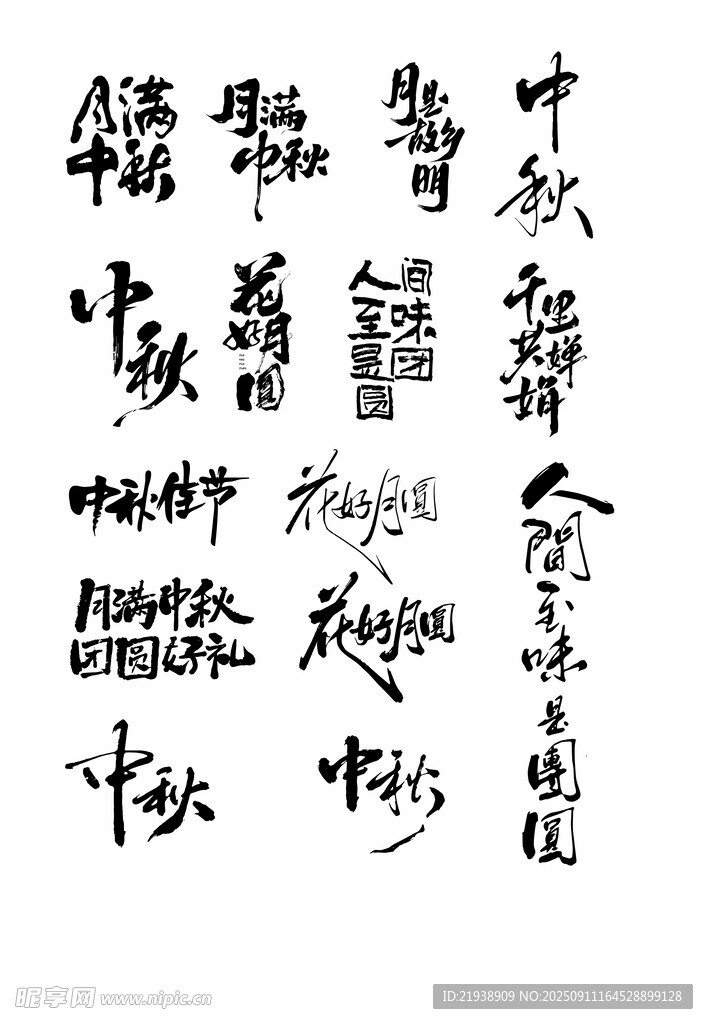 月满
中秋
月满
中秋
月是
故乡
明
中
秋
中
秋
花
好月
圆
人间
至味
是团
圆
千里
共婵
娟
中秋佳节
花好月圓
人
間
至
味
是
團
圓
月满中秋
团圆好礼
花好月圓
中秋
中秋
昵享网 www.nipic.cn
ID:21938909 NO:20250911164528899128